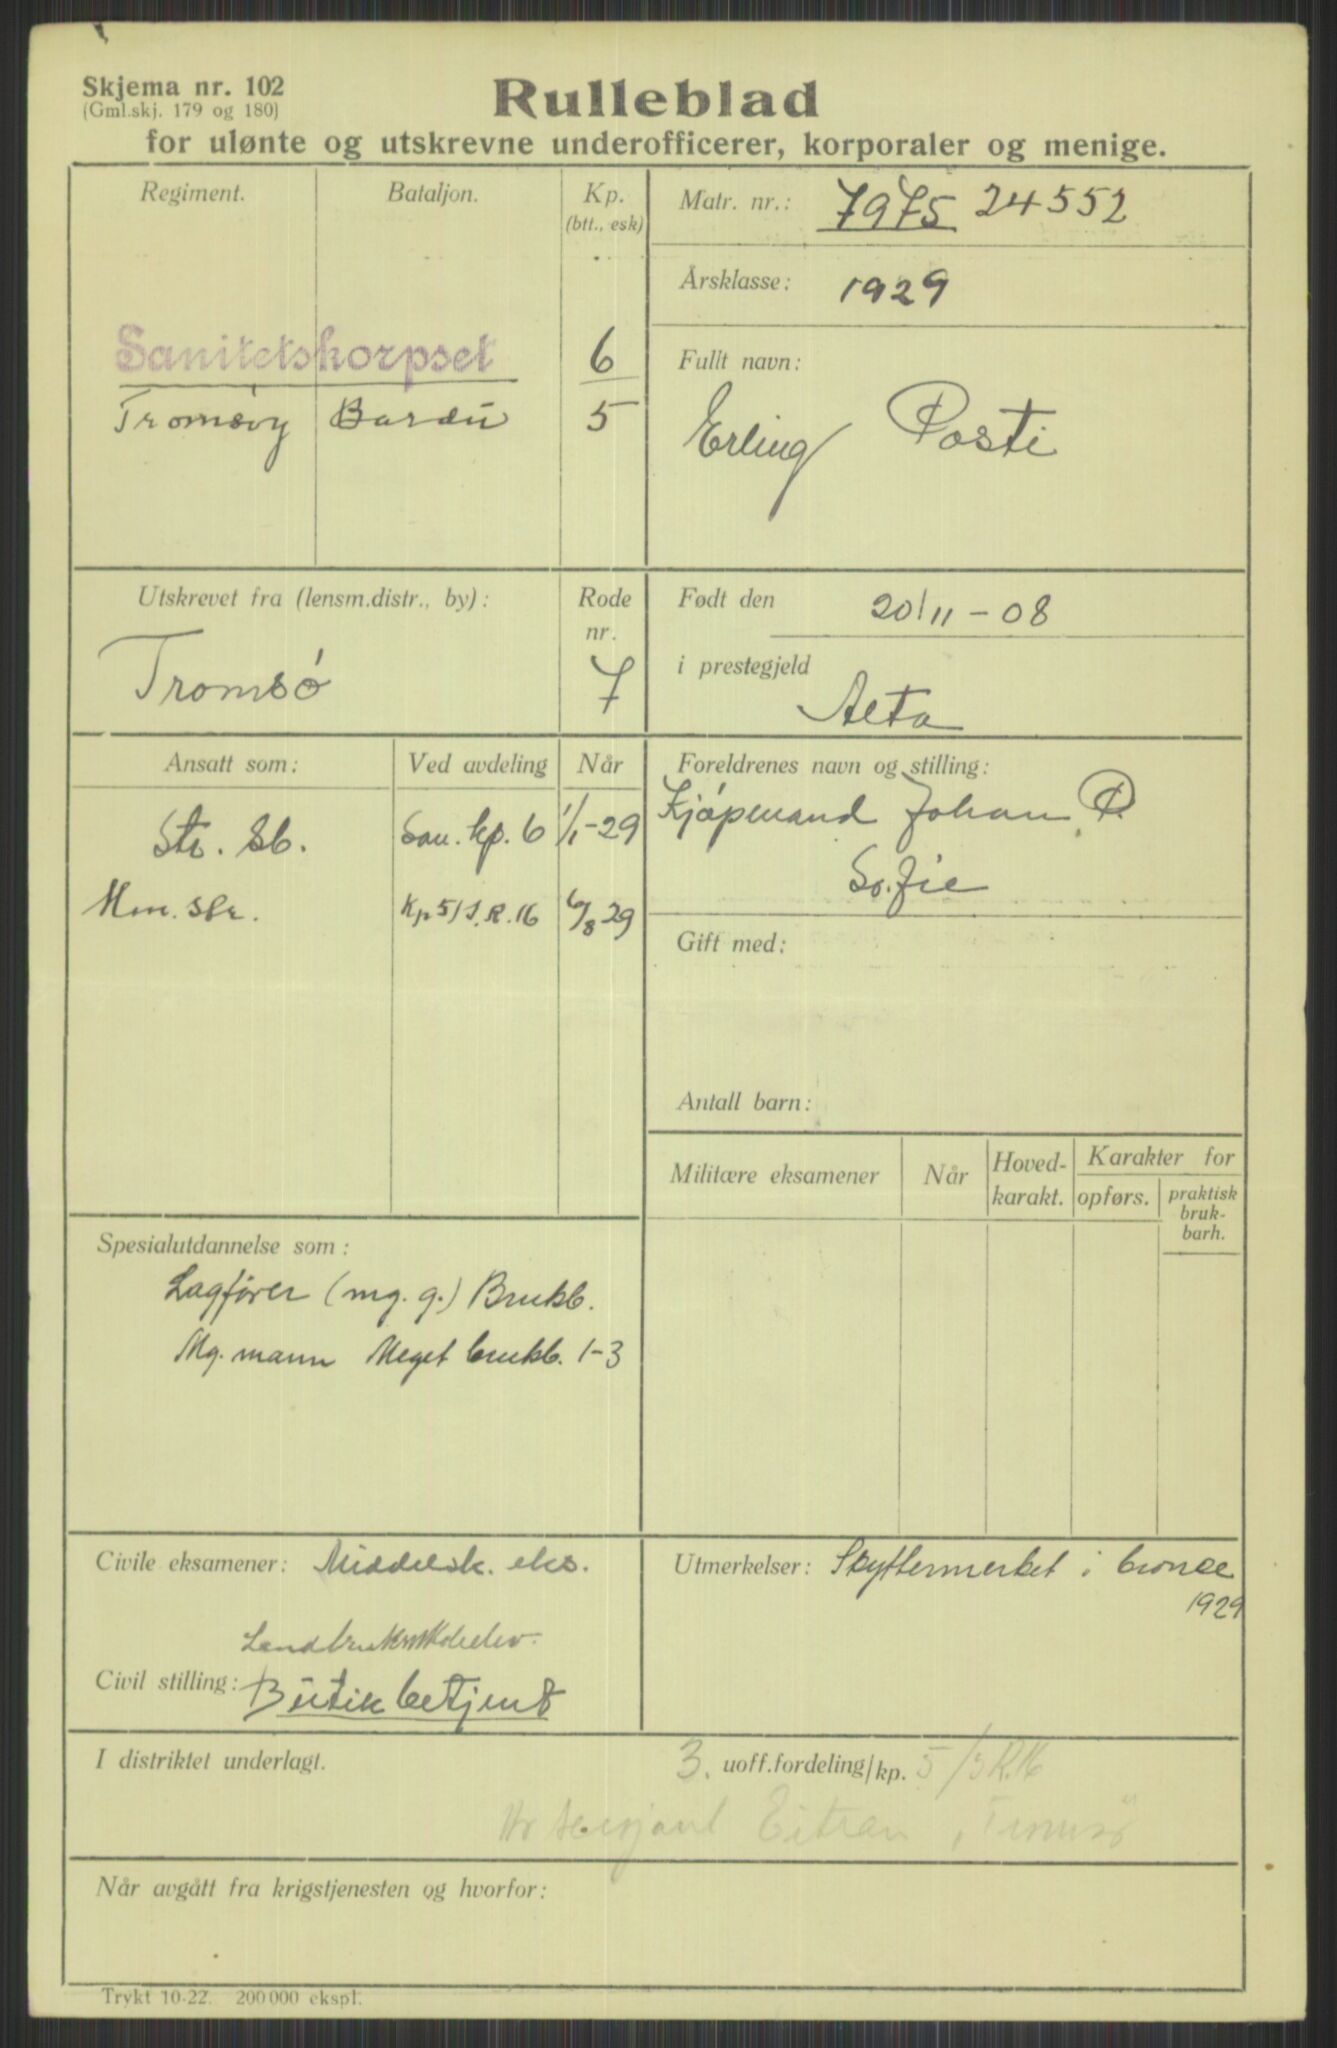 Skjema nr. 102
(Gml.skj. 179 og 180)
Rulleblad
for ulønte og utskrevne underofficerer, korporaler og menige.
Regiment.
Bataljon.
Kp.
(btt., esk)
Sanitetskorpset
6
Tromsøy
Bardu
5
Matr. nr.: 7975 24552
Årsklasse: 1929
Fullt navn:
Erling Posti
Utskrevet fra (lensm.distr., by):
Tromsø
Rode
nr.
7
Født den 20/11-08
i prestegjeld
Alta
Ansatt som:
Ved avdeling
Når
Str. Sb.
San. kp. 6
1/1-29
Mm. skr.
Kp 5/I.R.16
6/8 29
Foreldrenes navn og stilling:
Kjøpmand Johan P.
Sofie
Gift med:
Antall barn:
Militære eksamener
Når
Hoved-
karakt.
Karakter for
opførs.
praktisk
bruk-
barh.
Spesialutdannelse som:
Lagfører (mg. g.) Brukb.
Mg. mann Meget brukb. 1-3
Civile eksamener: Middelsk. eks.
Landbruksskoleelev.
Civil stilling: Butikbetjent
Utmerkelser: Skyttermerket i bronce
1929
I distriktet underlagt.
3. uoff.fordeling/kp. 5/I.R.16
sersjant Eitran, Tromsø
Når avgått fra krigstjenesten og hvorfor:
Trykt 10-22. 200 000 ekspl.